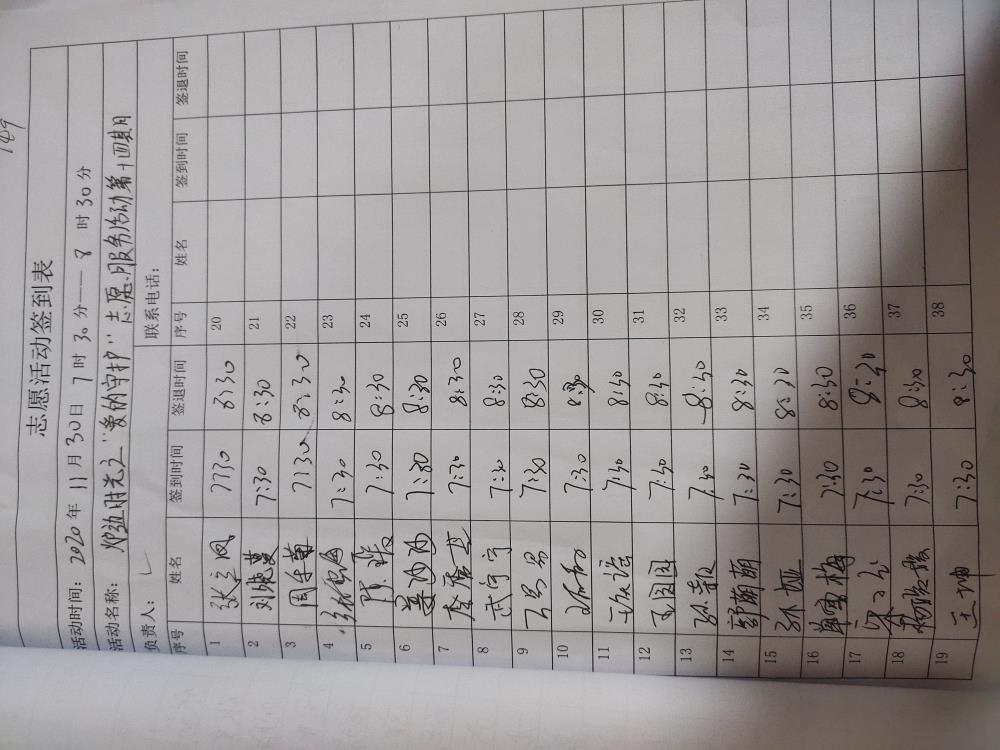 189
志愿活动签到表
活动时间：2020年11月30日7时30分——8时30分
活动名称：炉边时光之“爱的守护”志愿服务活动第十四期
负责人： 联系电话：
序号 姓名 签到时间 签退时间 序号 姓名 签到时间 签退时间
1 张立凤 7:30 8:30 20
2 刘晓蔓 7:30 8:30 21
3 7:30 8:30 22
4 7:30 8:30 23
5 7:30 8:30 24
6 沙沙 7:30 8:30 25
7 7:30 8:30 26
8 武宁宁 7:30 8:30 27
9 7:30 8:30 28
10 7:30 8:30 29
11 7:30 8:30 30
12 王团团 7:30 8:30 31
13 7:30 8:30 32
14 邹萌萌 7:30 8:30 33
15 孙娅 7:30 8:30 34
16 雪梅 7:30 8:30 35
17 7:30 8:30 36
18 7:30 8:30 37
19 王坤 7:30 8:30 38